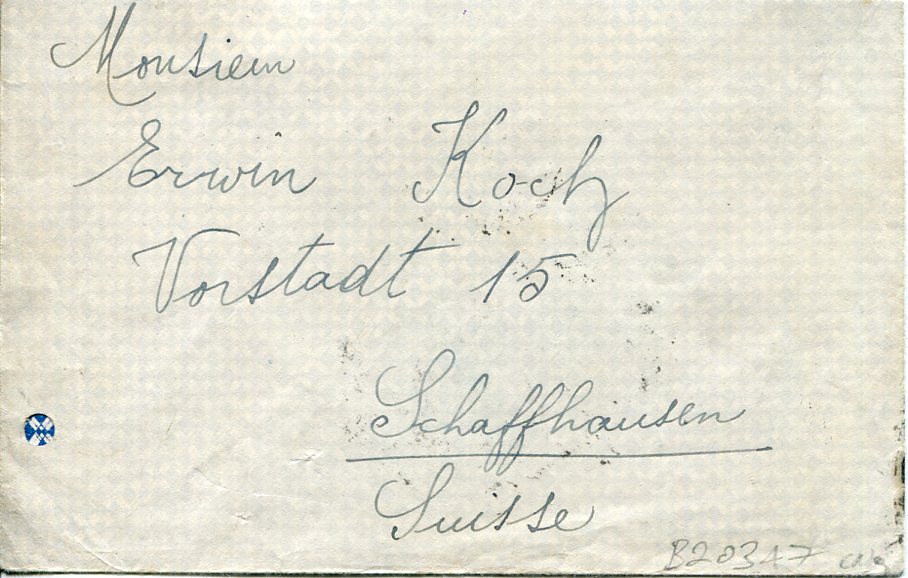 Monsieur
Erwin Koch
Vorstadt 15
Schaffhausen
Suisse
B20317